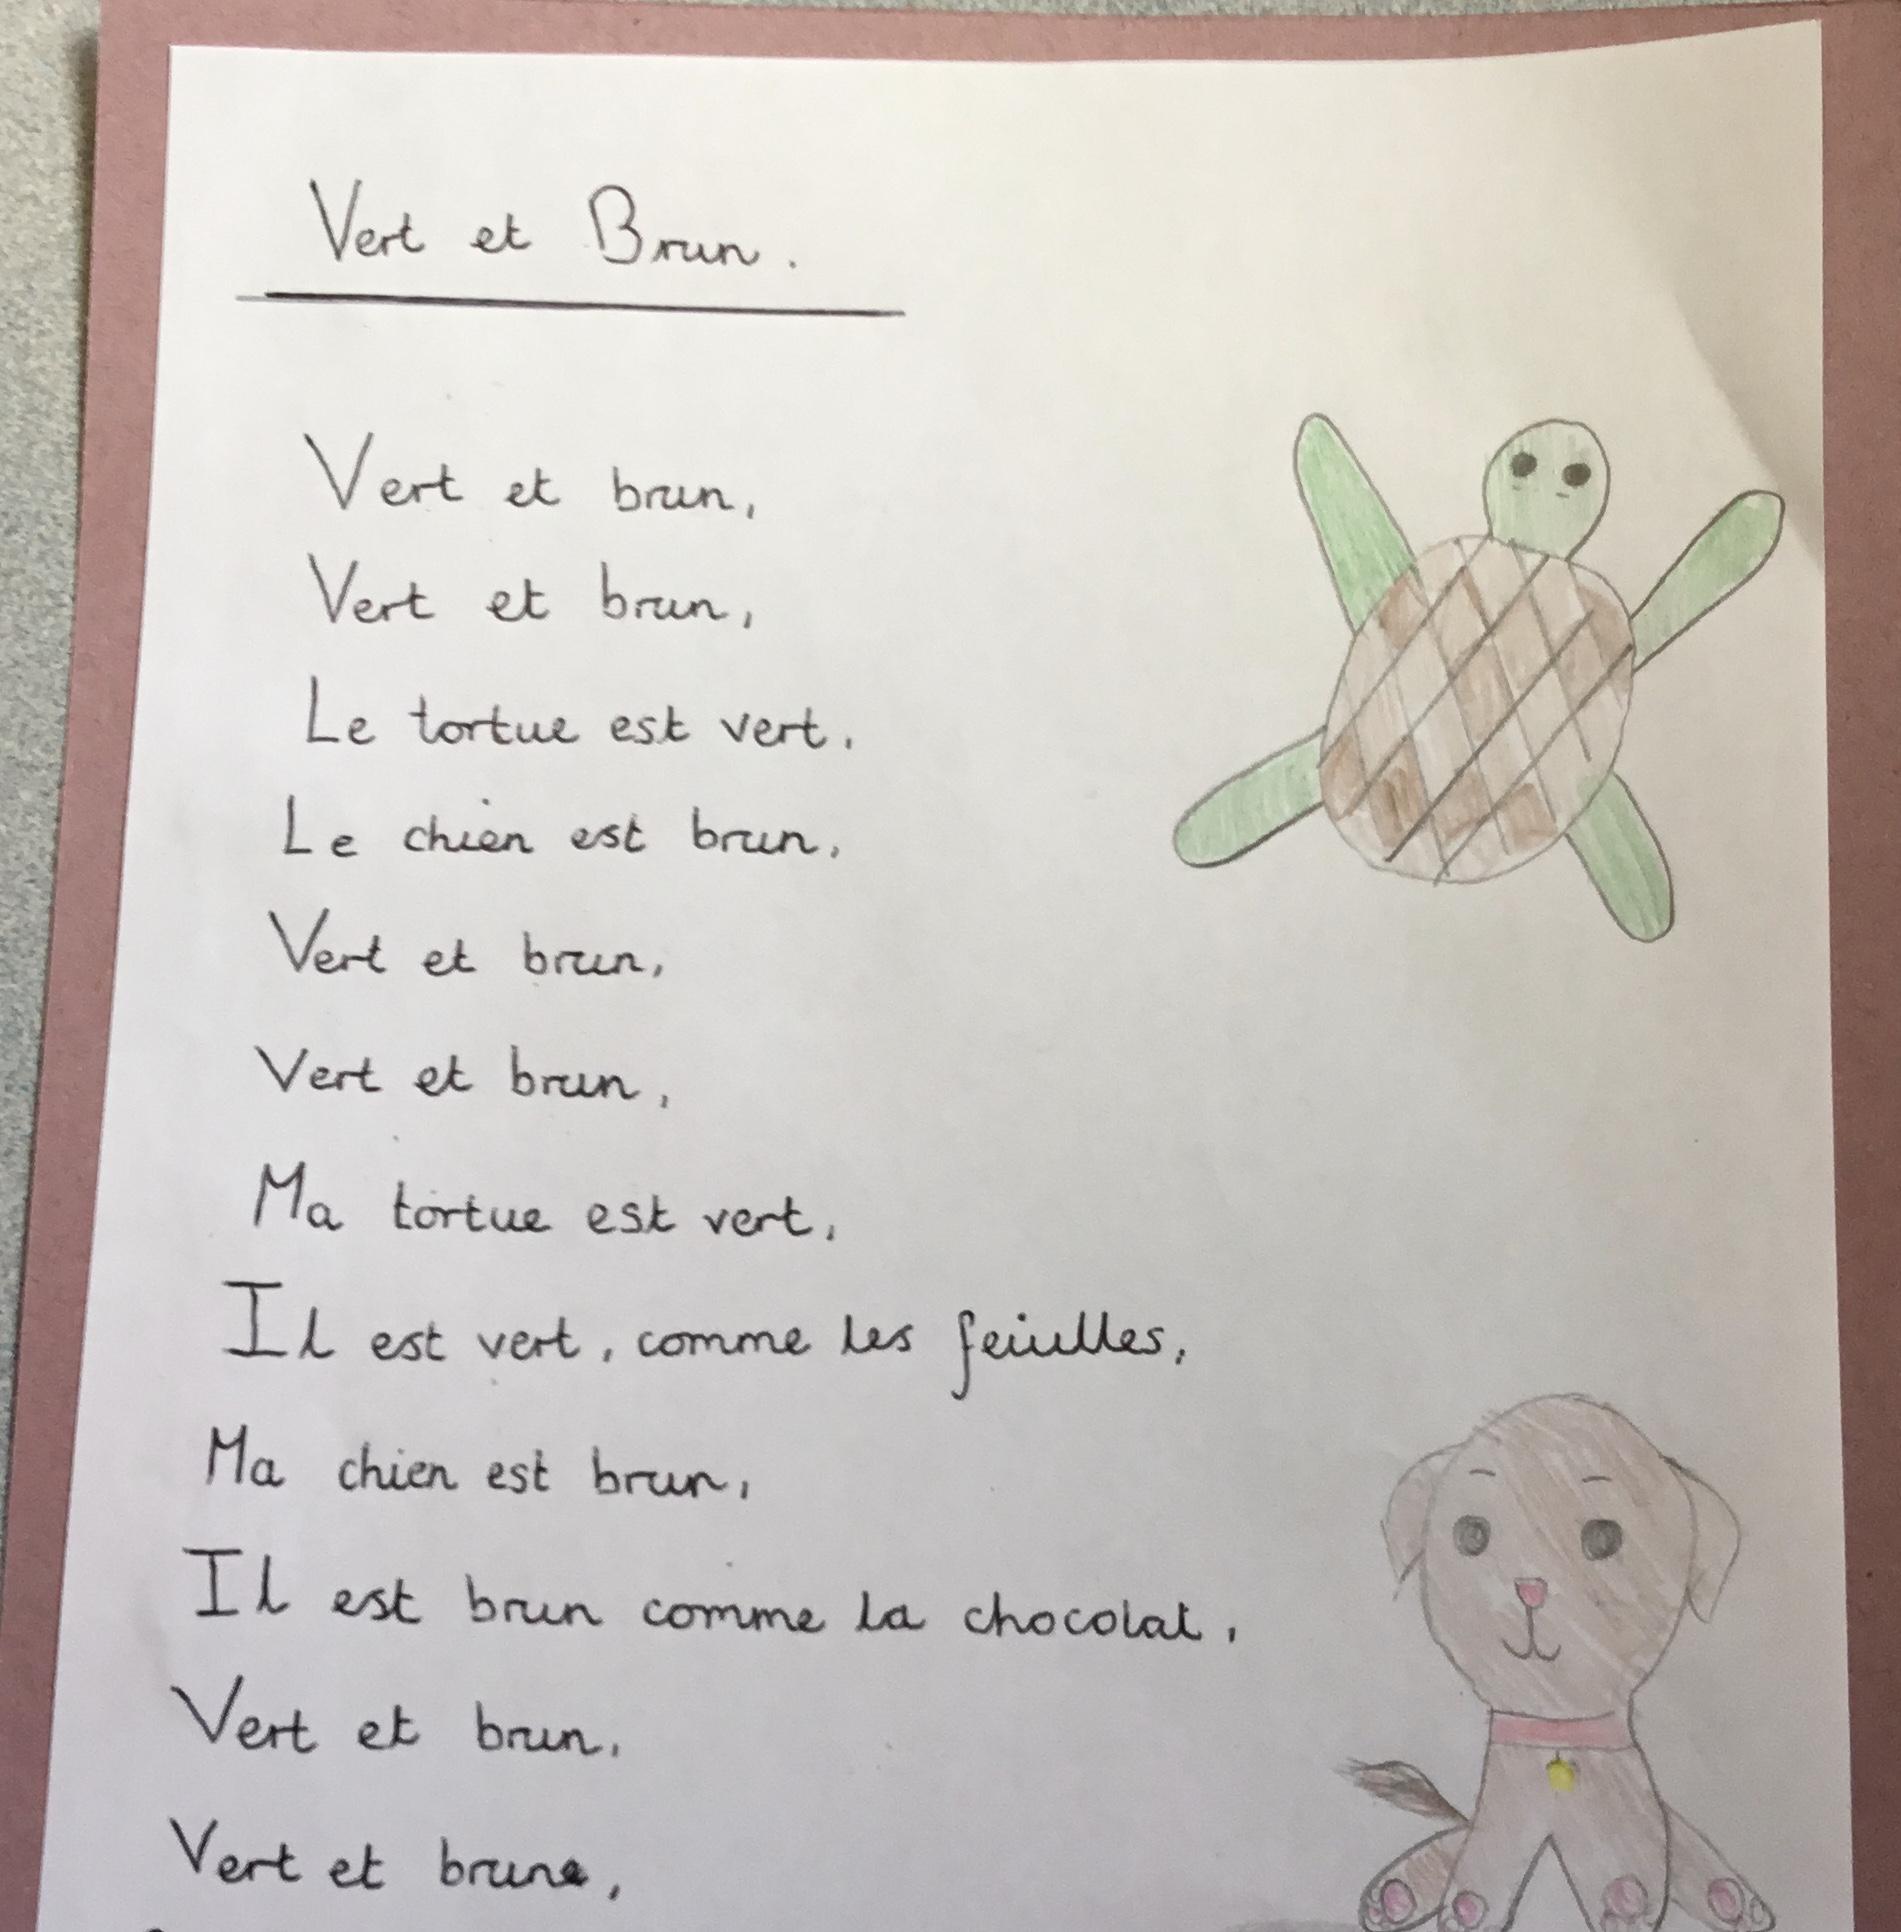 Vert et Brun.
Vert et brun,
Vert et brun,
Le tortue est vert,
Le chien est brun,
Vert et brun,
Vert et brun,
Ma tortue est vert,
Il est vert, comme les feiulles,
Ma chien est brun,
Il est brun comme la chocolat,
Vert et brun,
Vert et brune,